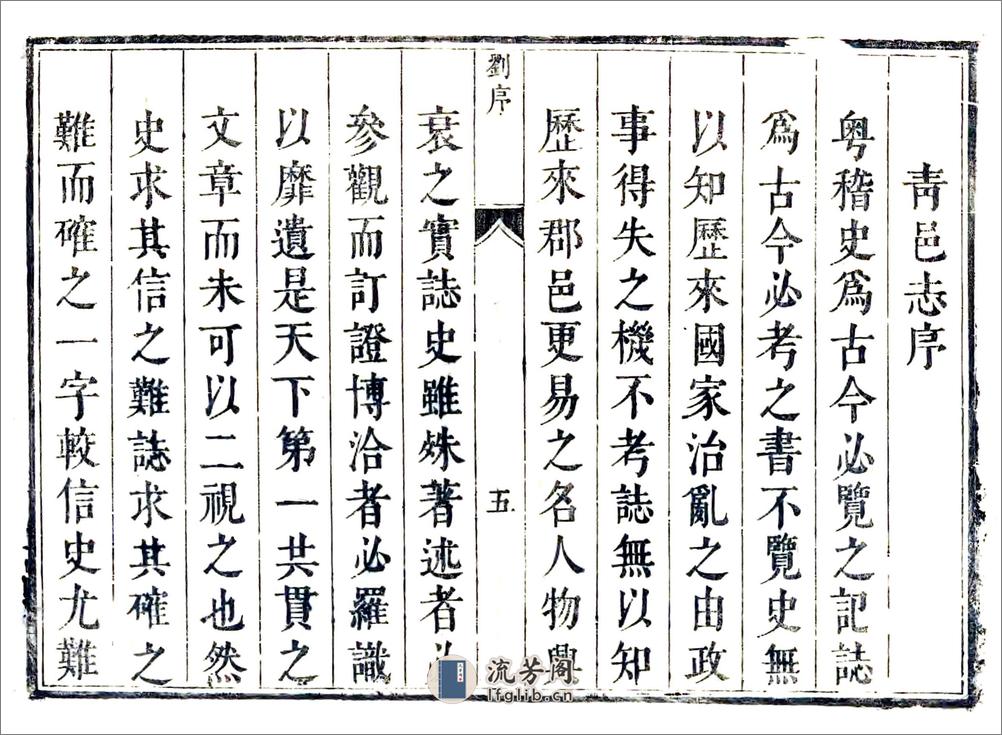 靑邑志序
粵稽史爲古今必覽之記誌
爲古今必考之書不覽史無
以知歷來國家治亂之由政
事得失之機不考誌無以知
歷來郡邑更易之名人物興
劉序
五
衰之實誌史雖殊著述者
參觀而訂證博洽者必羅識
以靡遺是天下第一共貫之
文章而未可以二視之也然
史求其信之難誌求其確之
難而確之一字較信史尤難
流芳阁
lfglib.cn